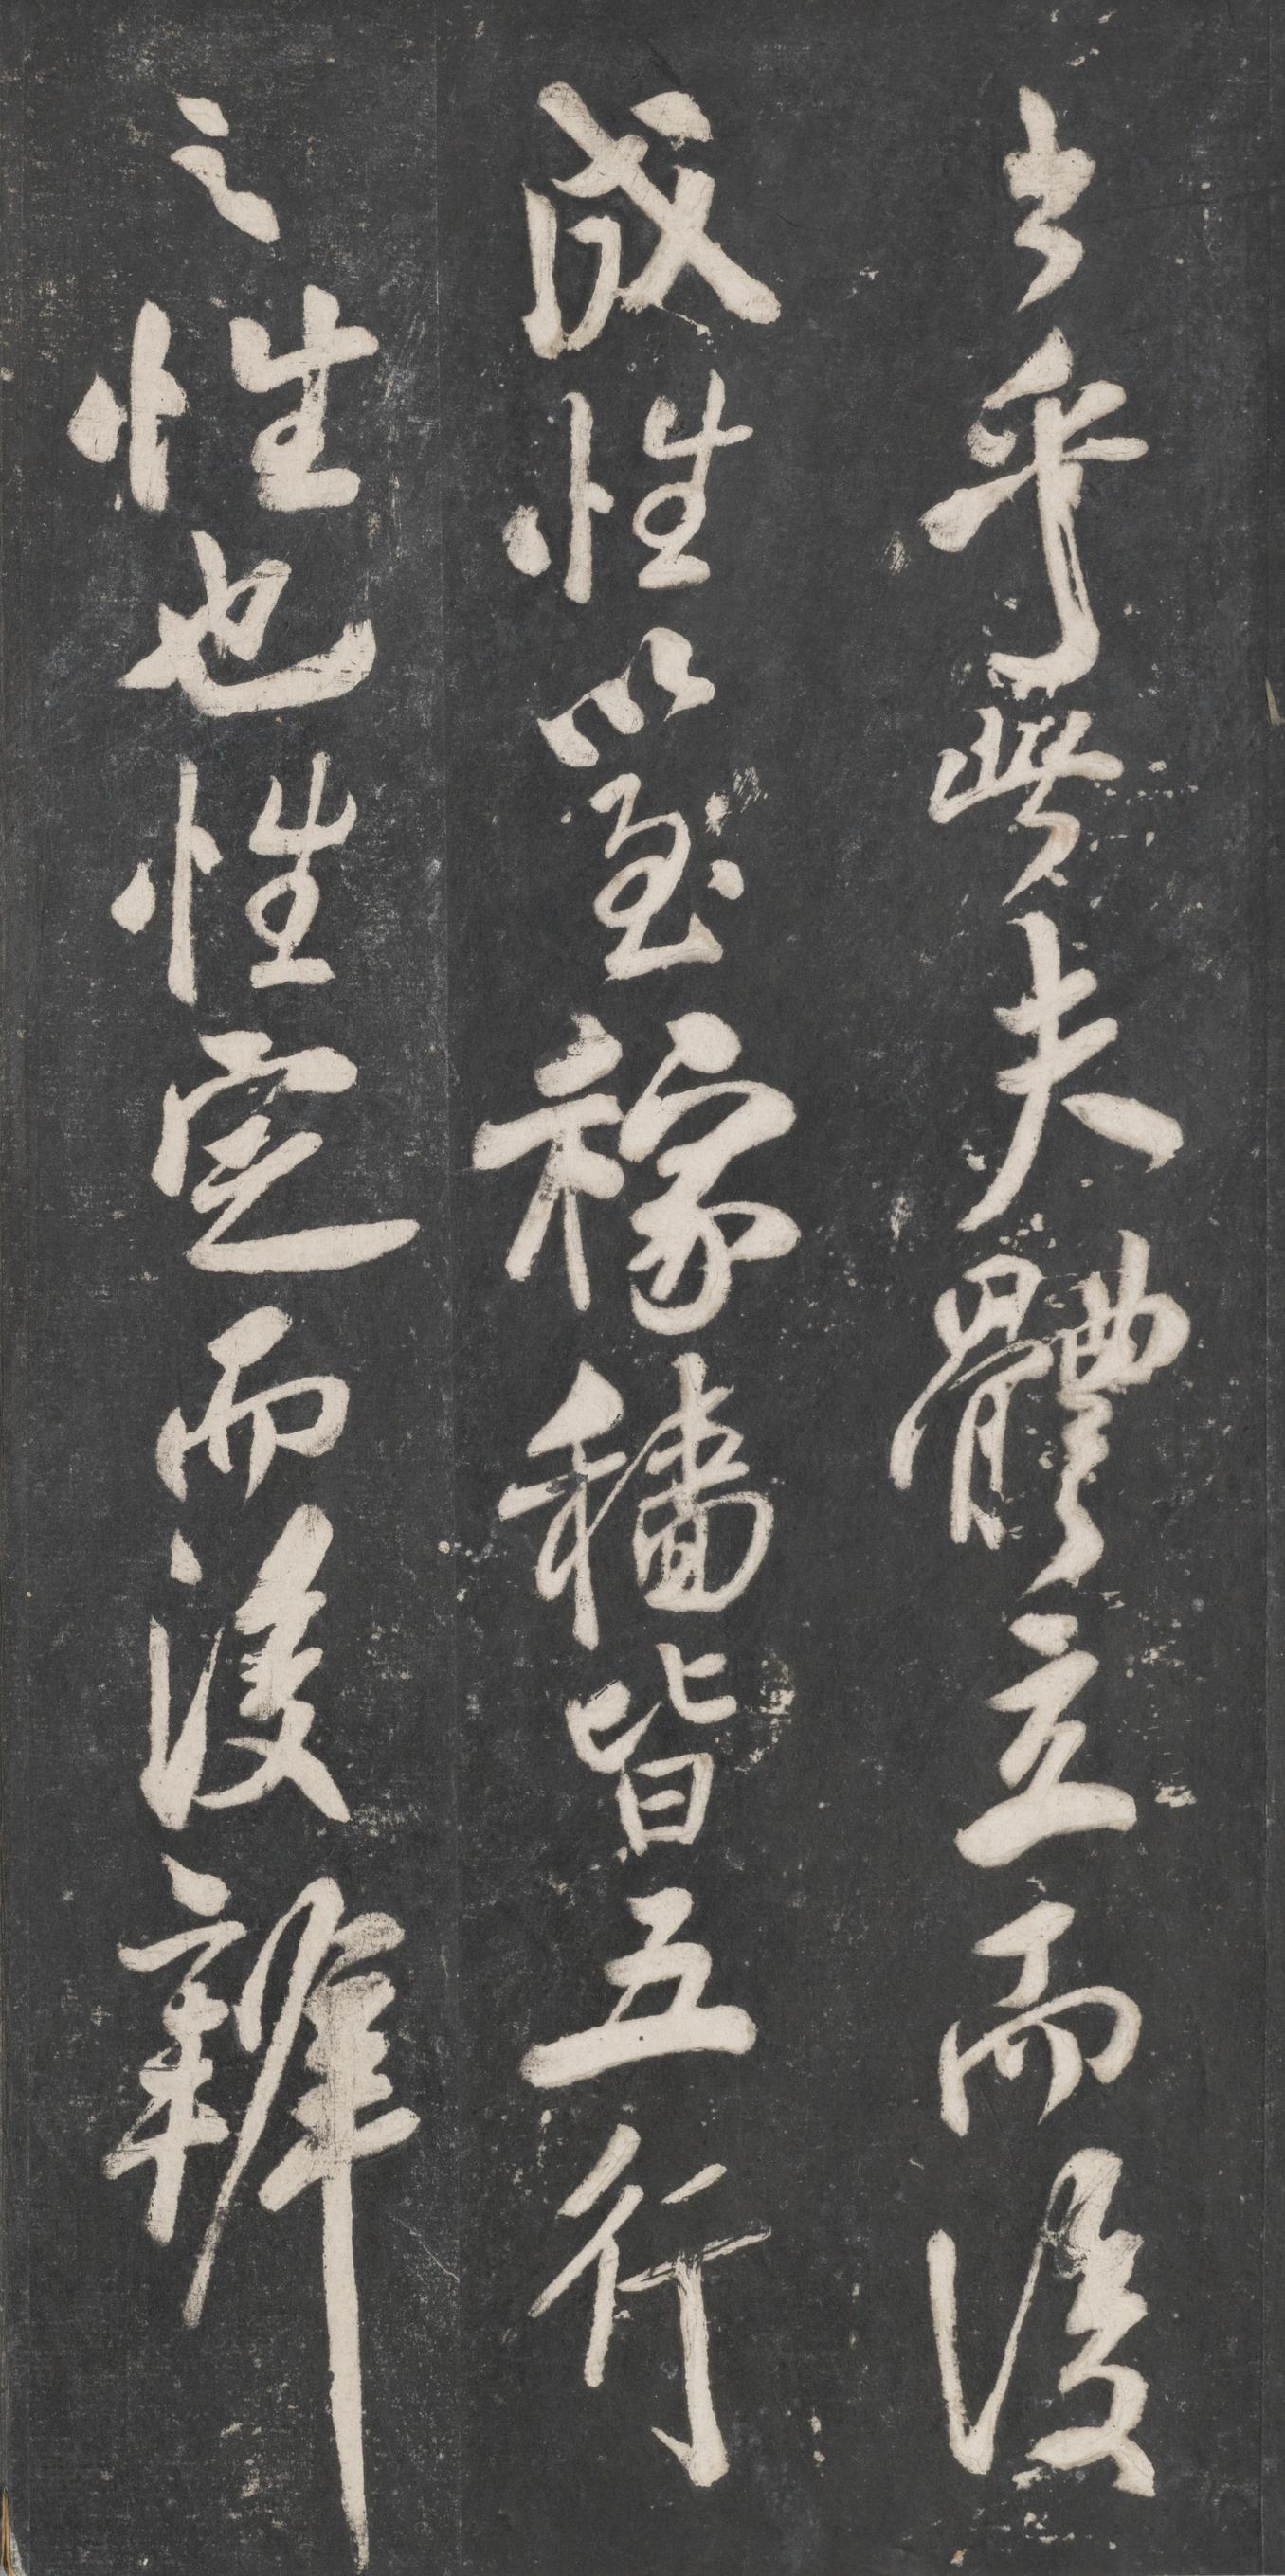 乎夫體立而後
成性以至稼穡皆五行
之性也性定而後辨